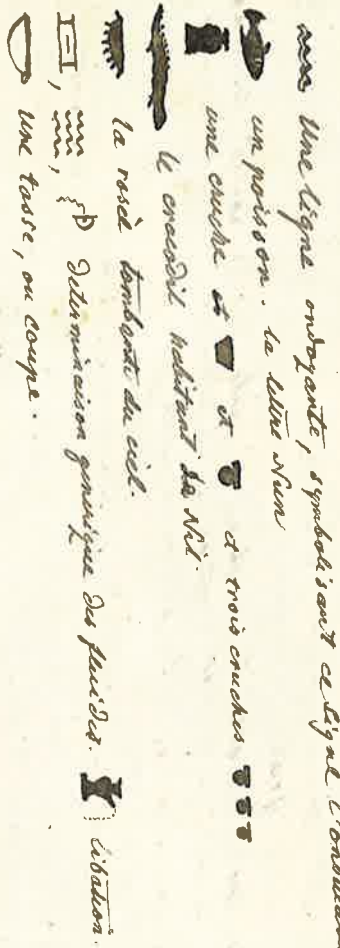 Une ligne ondoyante, symbolisant ce signe
un poisson. la lettre Nun
une cruche et et et trois cruches
le crocodil habitant du Nil.
la rosée tombante du ciel.
, , Determinaison générique des fluides. Libation.
une tasse, ou coupe.